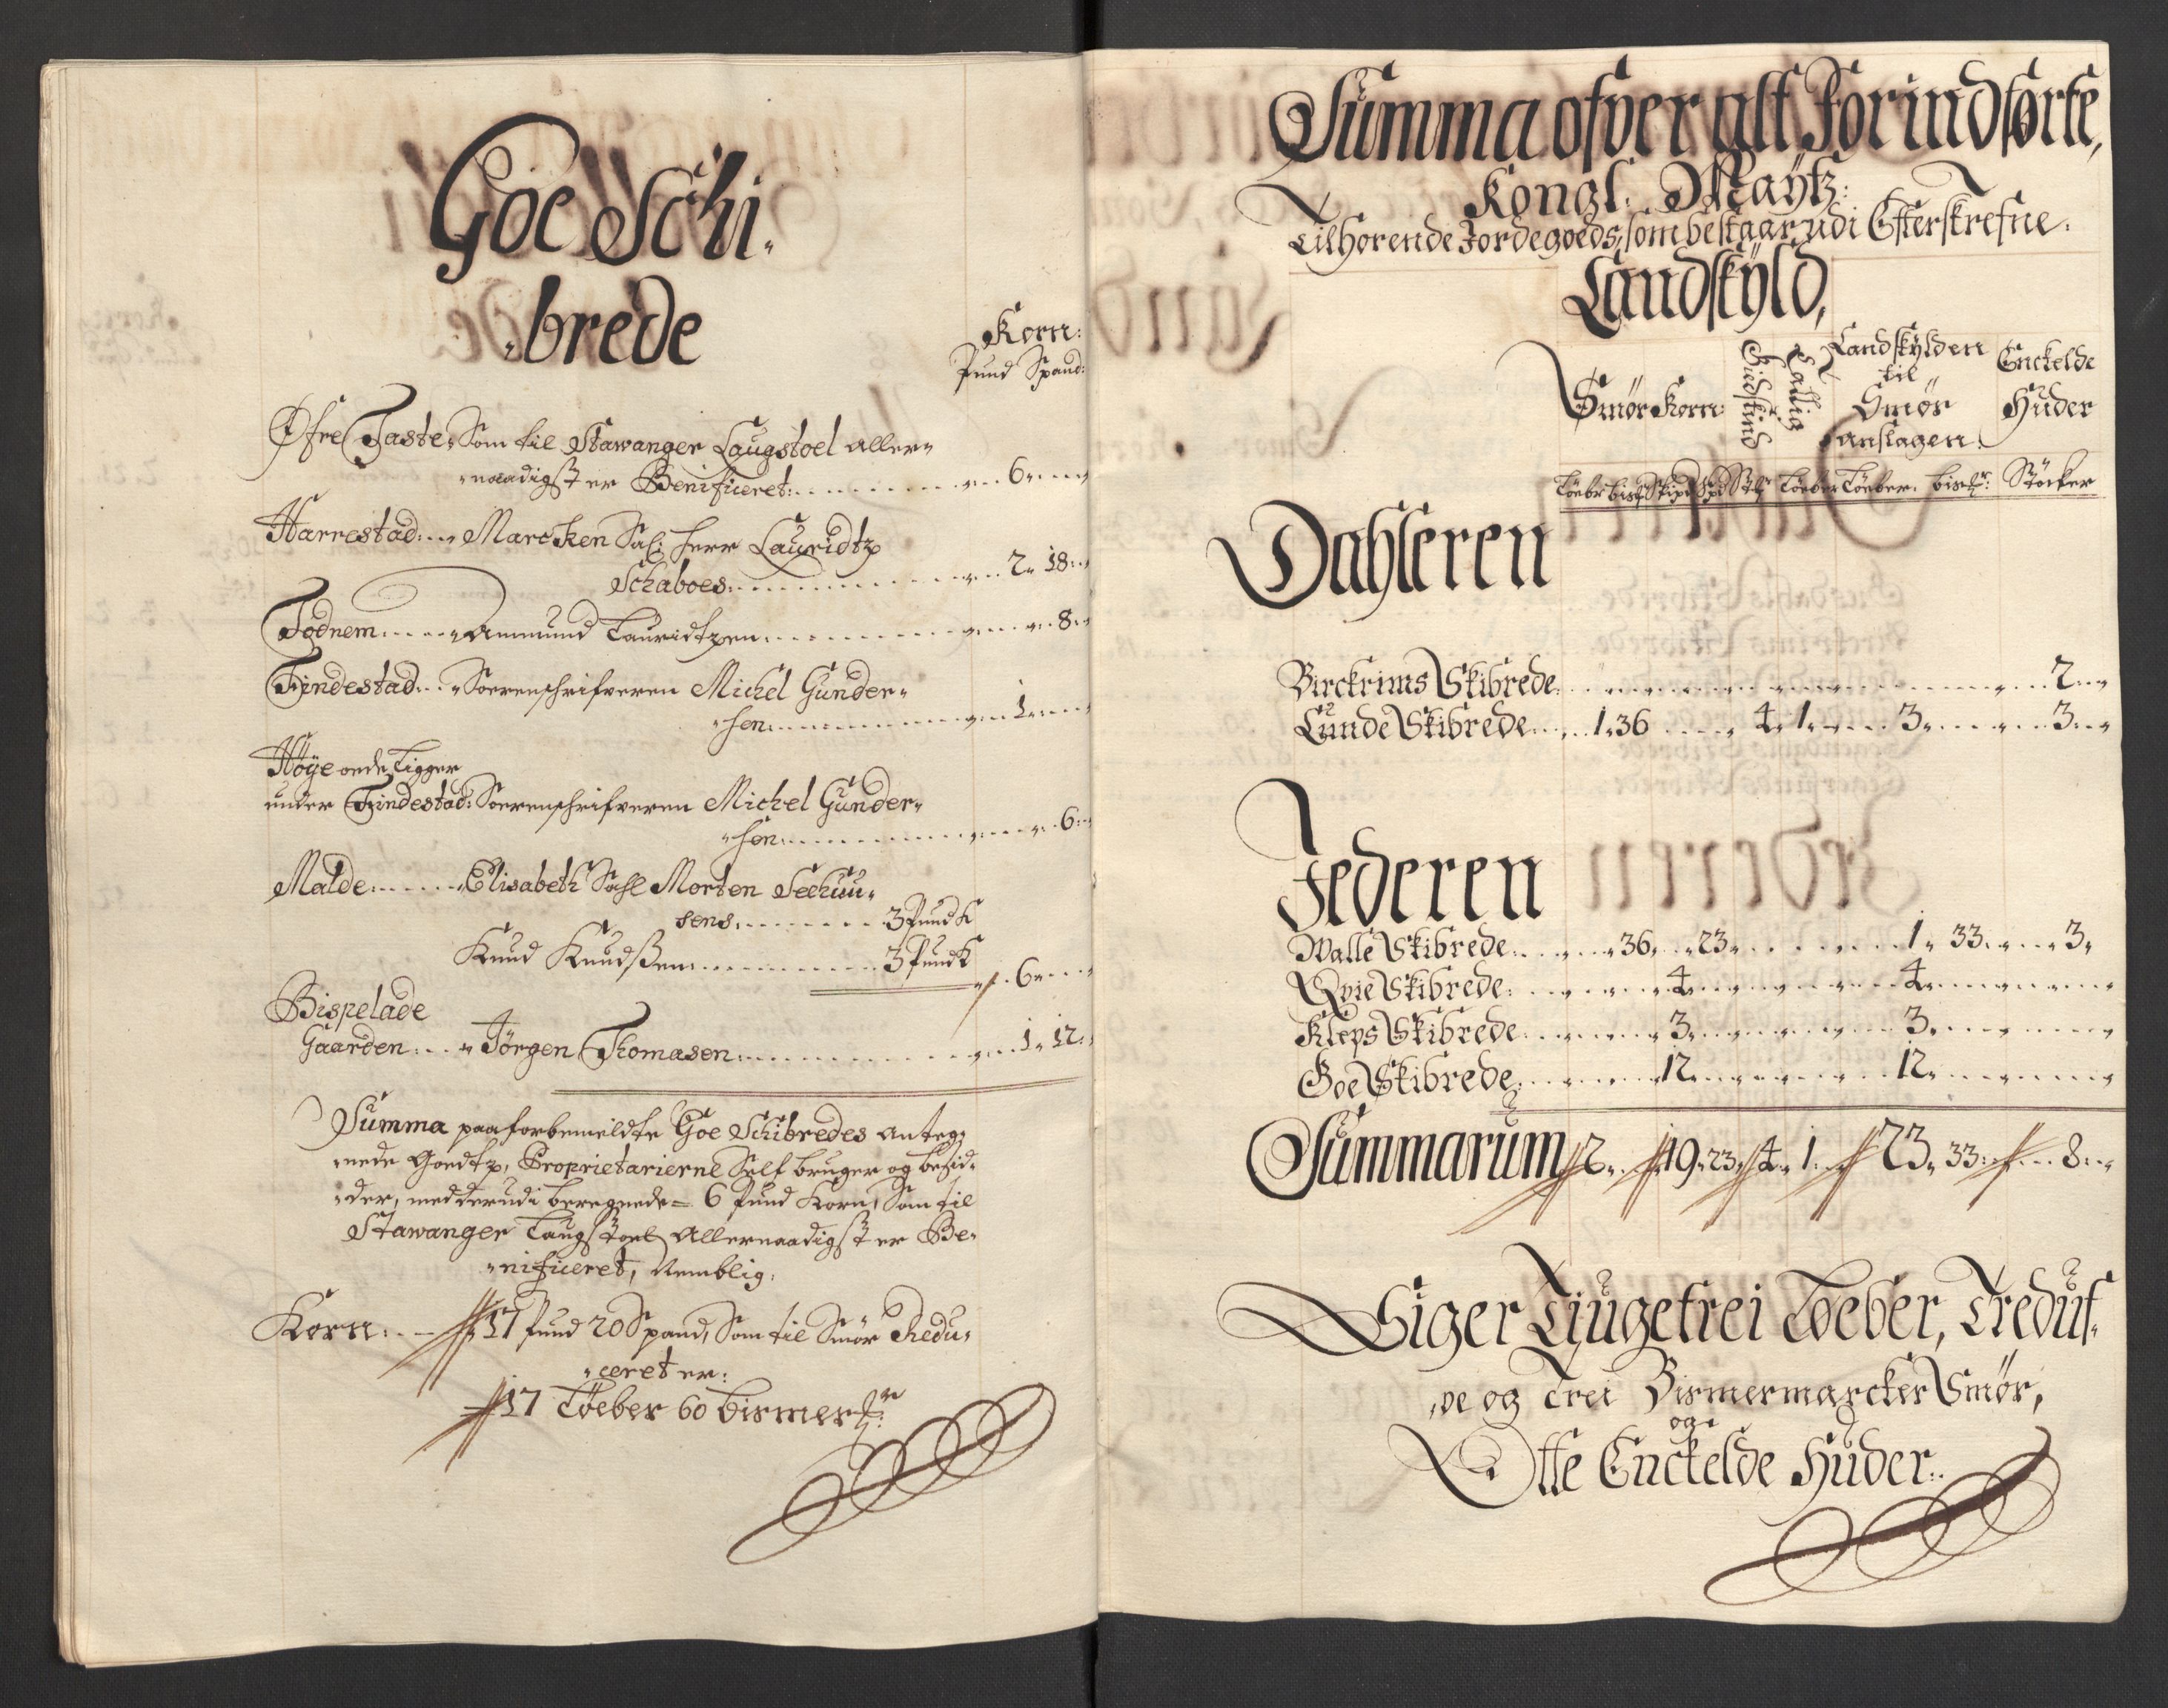 Goe Schi-
-brede
Korn:
Pund Spand:
Øfre Taste, Som til Stawanger Laugstoel aller-
-naadigst er Benificeret: 6
Harrestad: Marcken Sal: Herr Lauridtz
Schaboes: 2 18
Todnem Ammund Lauridtzen 8
Findestad Sorenschrifveren Michel Gunder-
-sen 1
Høye øede, Ligger
under Findestad: Sorenschrifveren Michel Gunder-
-sen 6
Malde Elisabeth Sahl Morten Seehuu-
sens 3 Pund K
Knud Knudßen 3 Pund K
6
Bispelade
Gaarden Jörgen Thomasen 1 12
Summa paa forbemeldte Goe Schibredes anteg-
-nede Goedtz, Proprietarierne Self bruger og besid-
-der, med derudi beregnede = 6 Pund Korn, Som til
Stawanger Laugstoel Allernaadigst er Be-
-nificeret, Nemblig:
Korn: 17 Pund 20 Spand, Som til Smør Redu-
-ceret er:
17 Løeber 60 bismer
Summa ofver alt Forindførte,
Kongl. Maÿtz:
Tilhorende Jordegoeds, som bestaar udi Efterskrefne
Landskÿld,
Smør Korn: Giedskind Tallig Landskÿlden til Smør anslagen: Enckelde Huder
Löeb bis Skipd Spd Löeber Löeber bis Stöcker
Dahleren
Birckrims Skibrede 2
Lunde Skibrede 1 36 4 1 3 3
Jederen
Walle Skibrede 36 23 1 33 3
Qvie Skibrede 4 4
Kleps Skibrede 3 3
Goe Skibrede 12 12
Summarum 2 19 23 4 1 23 33 8
Siger Tiugetrei Løeber, Treduf-
-ve og Trei Bismermarcker Smør,
og
Otte Enckelde Huder